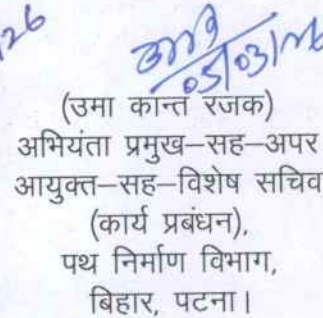 (उमा कान्त रजक)
अभियंता प्रमुख–सह–अपर
आयुक्त–सह–विशेष सचिव
(कार्य प्रबंधन),
पथ निर्माण विभाग,
बिहार, पटना।